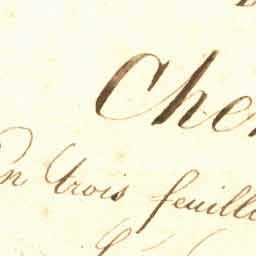 Che
en trois feuill